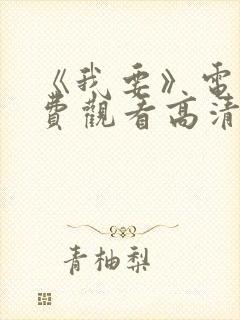 《我要》電
費觀看高清
青柚梨